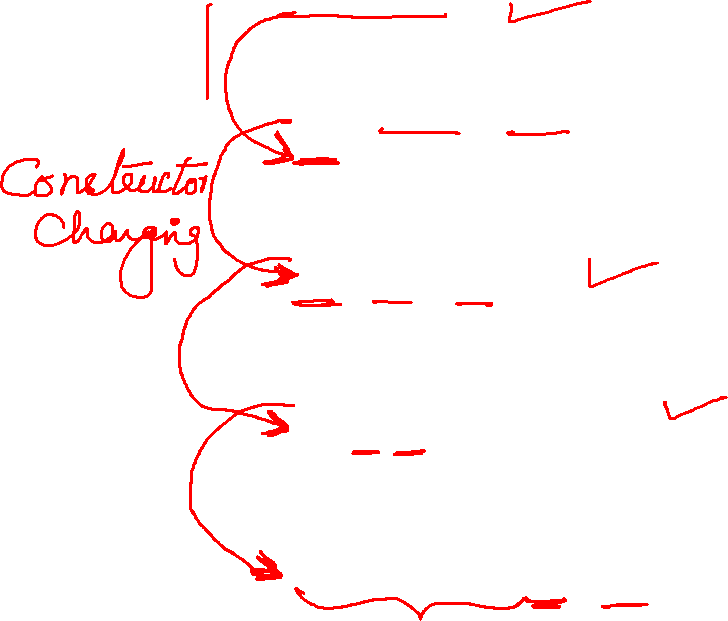 Constructor
Charging